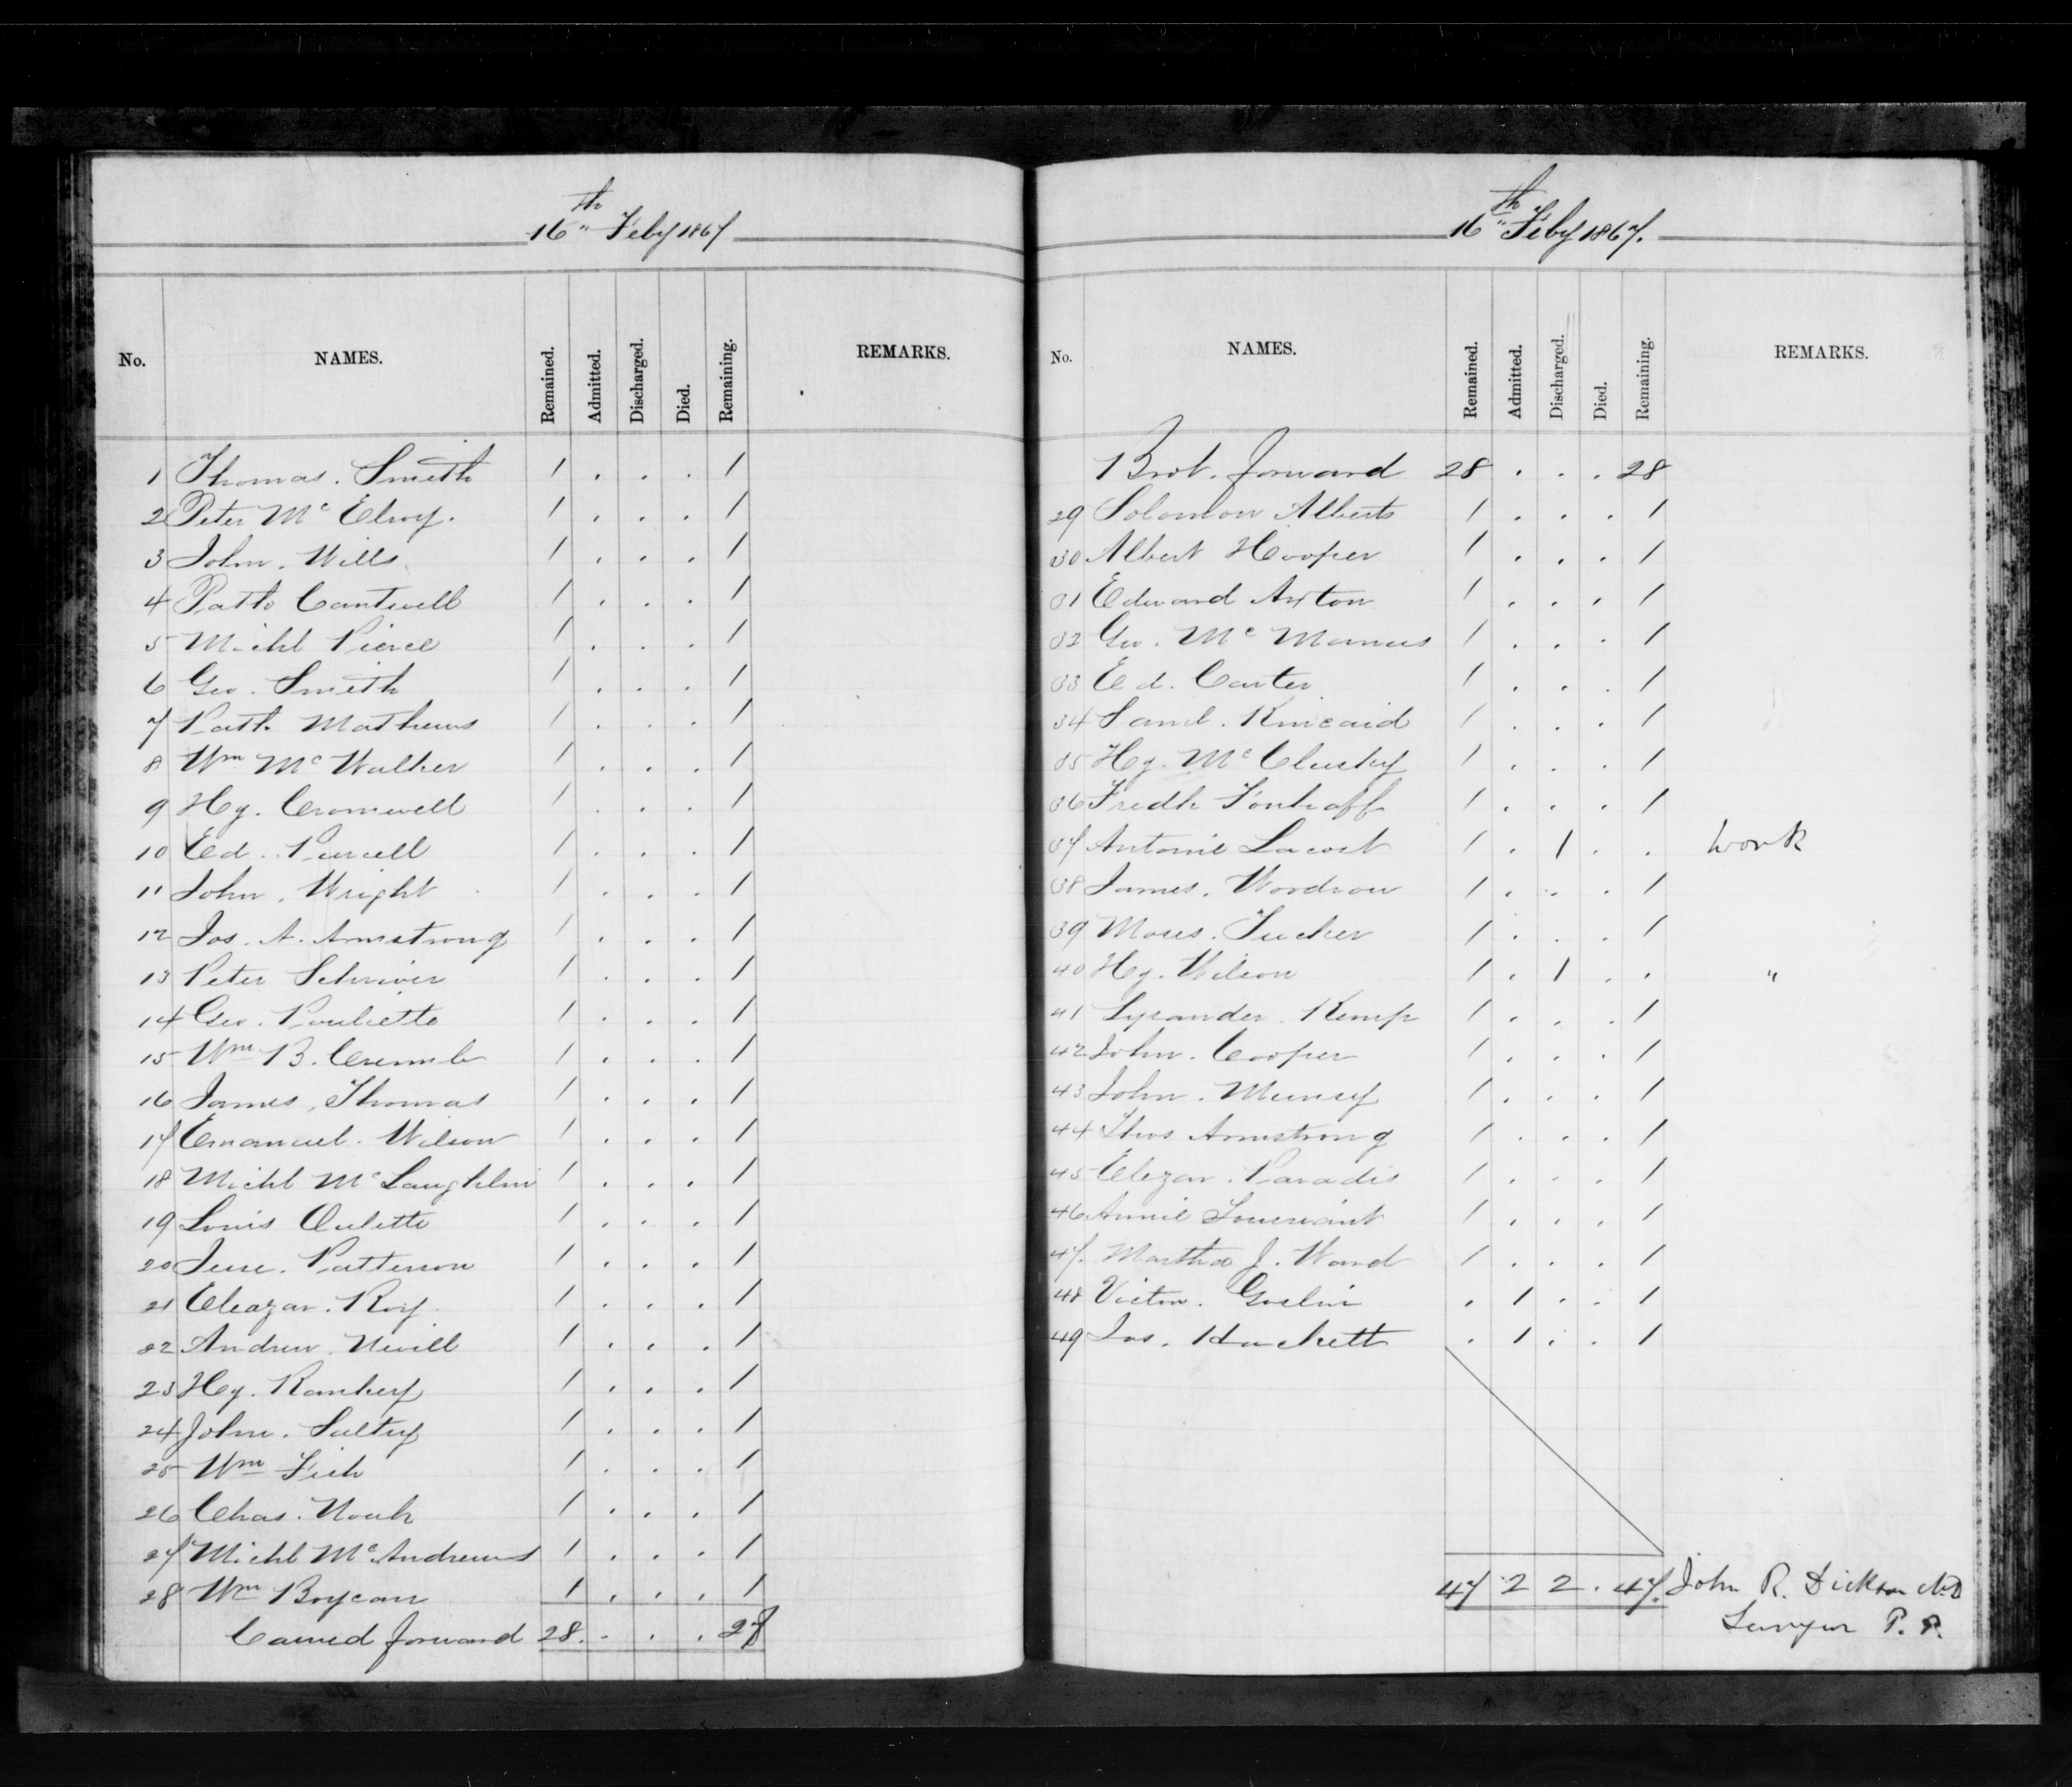 16th Feby 1867
No. NAMES. Remained. Admitted. Discharged. Died. Remaining. REMARKS.
1 Thomas. Smith 1 . . . 1
2 Peter Mc Elroy. 1 . . . 1
3 John. Wills 1 . . . 1
4 Patk Cantwell 1 . . . 1
5 Michl Pierce 1 . . . 1
6 Geo. Smith 1 . . . 1
7 Patk Mathews 1 . . . 1
8 Wm Mc Walker 1 . . . 1
9 Hy. Cromwell 1 . . . 1
10 Ed. Purcell 1 . . . 1
11 John. Wright 1 . . . 1
12 Jas. A. Armstrong 1 . . . 1
13 Peter Schriver 1 . . . 1
14 Geo. 1 . . . 1
15 Wm B. Crumb 1 . . . 1
16 James. Thomas 1 . . . 1
17 Emanuel. Wilson 1 . . . 1
18 Michl McLaughlin 1 . . . 1
19 Louis Oulette 1 . . . 1
20 Jesse. Patterson 1 . . . 1
21 Eleazar. Roy 1 . . . 1
22 Andrew. Nevill 1 . . . 1
23 Hy. 1 . . . 1
24 John. 1 . . . 1
25 Wm Fish 1 . . . 1
26 Chas. 1 . . . 1
27 Michl McAndrews 1 . . . 1
28 Wm 1 . . . 1
Carried forward 28 . . . 28
16th Feby 1867.
No. NAMES. Remained. Admitted. Discharged. Died. Remaining. REMARKS.
Brot. forward 28 . . . 28
29 Solomon Alberts 1 . . . 1
30 Albert Hooper 1 . . . 1
31 Edward Axton 1 . . . 1
32 Geo. Mc Manus 1 . . . 1
33 Ed. Carter 1 . . . 1
34 Saml. Kincaid 1 . . . 1
35 Hy. Mc Clusky 1 . . . 1
36 Fredk 1 . . . 1
37 Antoine Lacost 1 . 1 . . Work
38 James. Wordrow 1 . . . 1
39 Moses. Tucker 1 . . . 1
40 Hy. Wilson 1 . 1 . . "
41 Lysander. Kemp 1 . . . 1
42 John. Cooper 1 . . . 1
43 John. 1 . . . 1
44 Thos Armstrong 1 . . . 1
45 Elezar. Paradis 1 . . . 1
46 Annie 1 . . . 1
47. Martha J. Ward 1 . . . 1
48 Victor. Goslin . 1 . . 1
49 Jas. Hackett . 1 . . 1
47 2 2 . 47. John R. Dickson M.D
Surgeon P. P.